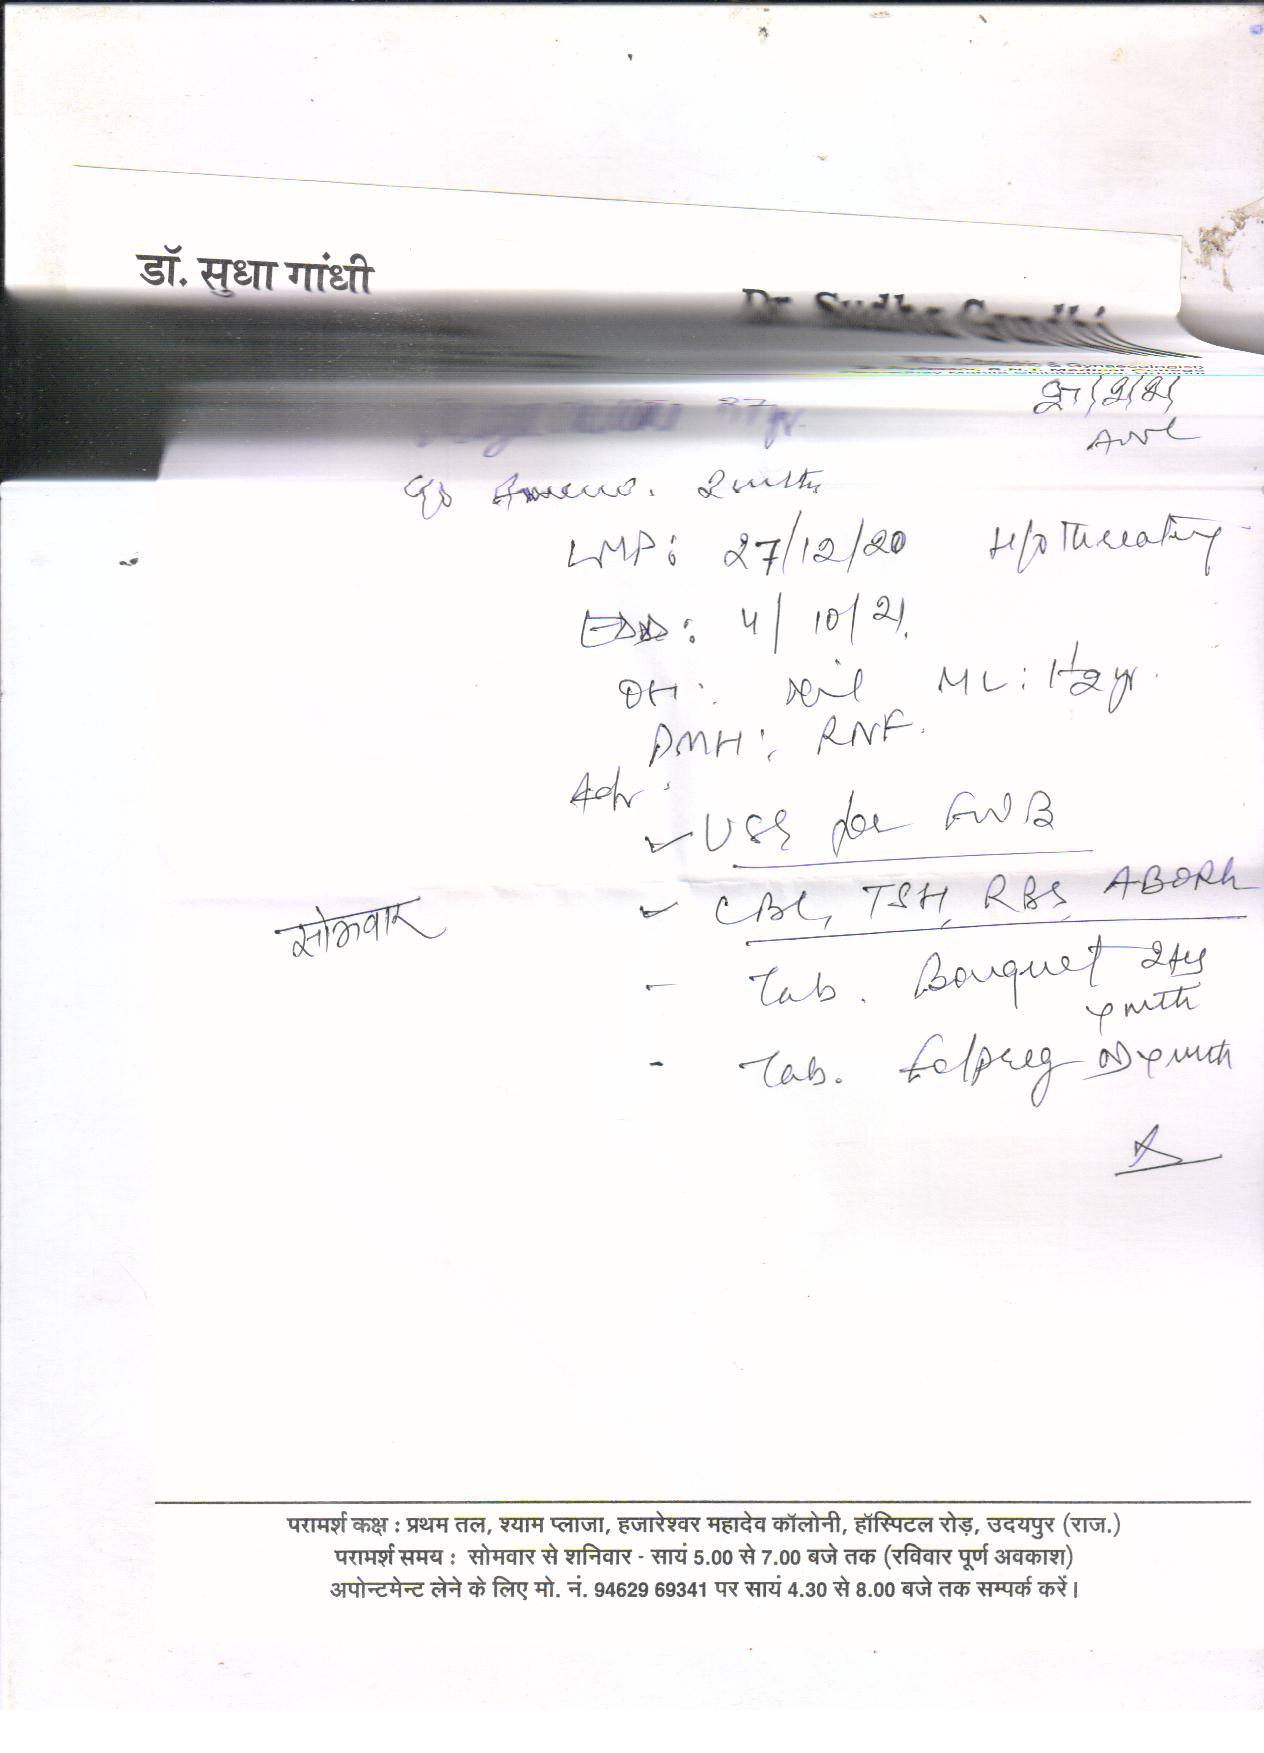 डॉ. सुधा गांधी
Dr. Sudha Gandhi
& Gynaecologist
R.N.T. Medical College
37yr.
2mths
LMP: 27/12/20 H/o Threating
EDD: 4/10/21
OH: Nil ML: 1 1/2 yr.
PMH: RNF.
Adv:
✓ USG for FWB
✓ CBC, TSH, RBS, ABORh
सोमवार
- Tab. Bouquet
x mth
- Tab. Folpreg OD x mth
परामर्श कक्ष : प्रथम तल, श्याम प्लाजा, हजारेश्वर महादेव कॉलोनी, हॉस्पिटल रोड़, उदयपुर (राज.)
परामर्श समय : सोमवार से शनिवार - सायं 5.00 से 7.00 बजे तक (रविवार पूर्ण अवकाश)
अपोन्टमेन्ट लेने के लिए मो. नं. 94629 69341 पर सायं 4.30 से 8.00 बजे तक सम्पर्क करें।